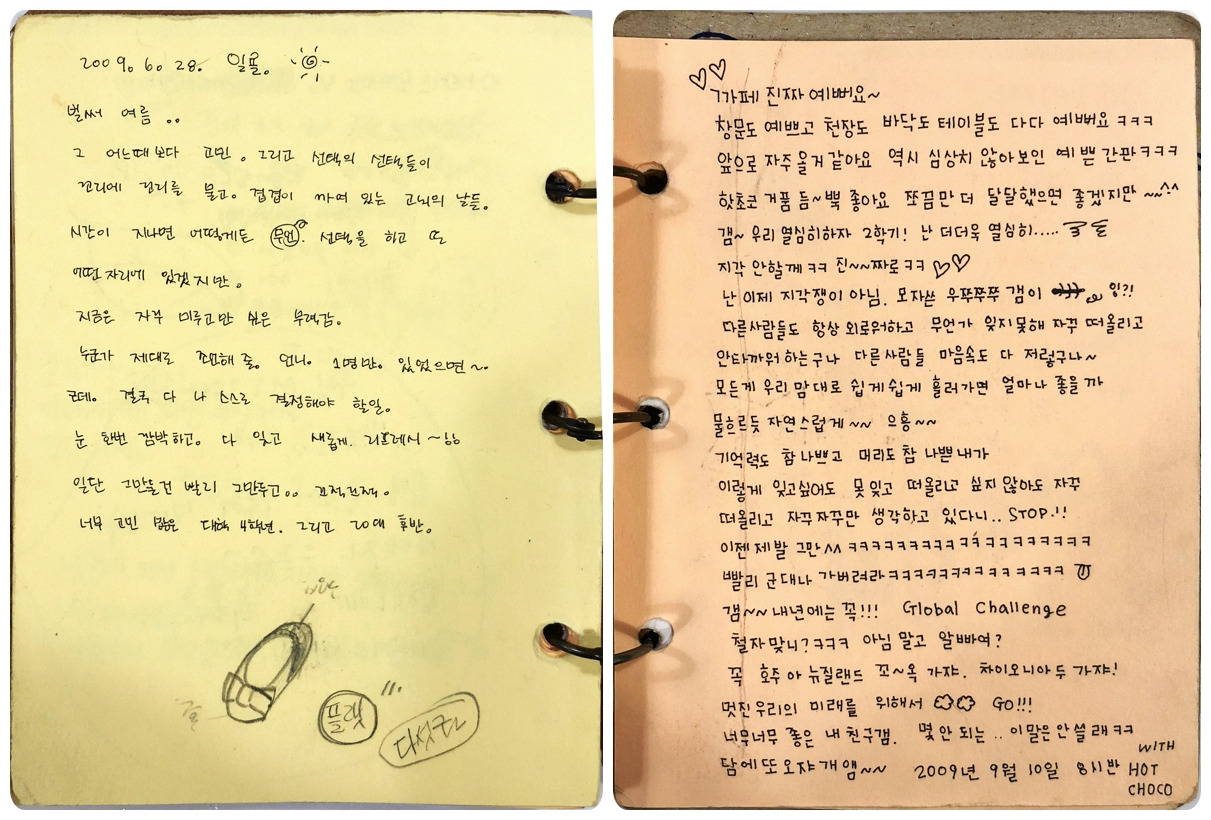 2009. 6. 28. 일욜.
벌써 여름 ..
그 어느때보다 고민. 그리고 선택의 선택들이
꼬리에 꼬리를 물고. 겹겹이 싸여 있는 고뇌의 날들.
시간이 지나면 어떻게든 무언. 선택을 하고 또
어떤 자리에 있겠지만.
지금은 자꾸 미루고만 싶은 무력감.
누군가 제대로 조언해 줄. 언니. 1명만. 있었으면~.
근데. 결국 다 나 스스로 결정해야 할일.
눈 한번 깜박하고. 다 잊고 새롭게. 리프레시~
일단 그만둘건 빨리 그만두고..
너무 고민 많은 대학 4학년. 그리고 20대 후반.
플랫
다섯켤
ㄱ가페 진짜 예뻐요~
창문도 예쁘고 천장도 바닥도 테이블도 다다 예뻐요 ㅋㅋㅋ
앞으로 자주올거같아요 역시 심상치 않아보인 예쁜 간판ㅋㅋㅋ
핫초코 거품 듬~뿍 좋아요 쪼끔만 더 달달했으면 좋겠지만 ~~^^
갬~ 우리 열심히하자 2학기! 난 더더욱 열심히.....
지각 안할께 ㅋㅋ 진~~짜로ㅋㅋ
난 이제 지각쟁이 아님. 모자쓴 우쭈쭈쭈 갬이 잉?!
다른사람들도 항상 외로워하고 무언가 잊지못해 자꾸 떠올리고
안타까워 하는구나 다른사람들 마음속도 다 저렇구나~
모든게 우리 맘대로 쉽게쉽게 흘러가면 얼마나 좋을까
물흐르듯 자연스럽게~~ 으흥~~
기억력도 참나쁘고 머리도 참 나쁜내가
이렇게 잊고싶어도 못잊고 떠올리고 싶지않아도 자꾸
떠올리고 자꾸자꾸만 생각하고 있다니.. STOP!!
이젠제발 그만^^ ㅋㅋㅋㅋㅋㅋㅋㅋㅋㅋㅋㅋㅋㅋㅋㅋ
빨리 군대나 가버려라ㅋㅋㅋㅋㅋㅋㅋㅋㅋㅋㅋㅋㅋㅋ
갬~~내년에는 꼭!!! Global Challenge
철자맞니?ㅋㅋㅋ 아님 말고 알빠여?
꼭 호주 아 뉴질랜드 꼬~옥 가쟈. 차이오니아두 가쟈!
멋진우리의 미래를 위해서 GO!!!
너무너무 좋은 내친구갬. 몇안되는.. 이말은안쓸래ㅋㅋ
담에또오쟈개앰~~ 2009년 9월 10일 8시반
WITH
HOT
CHOCO